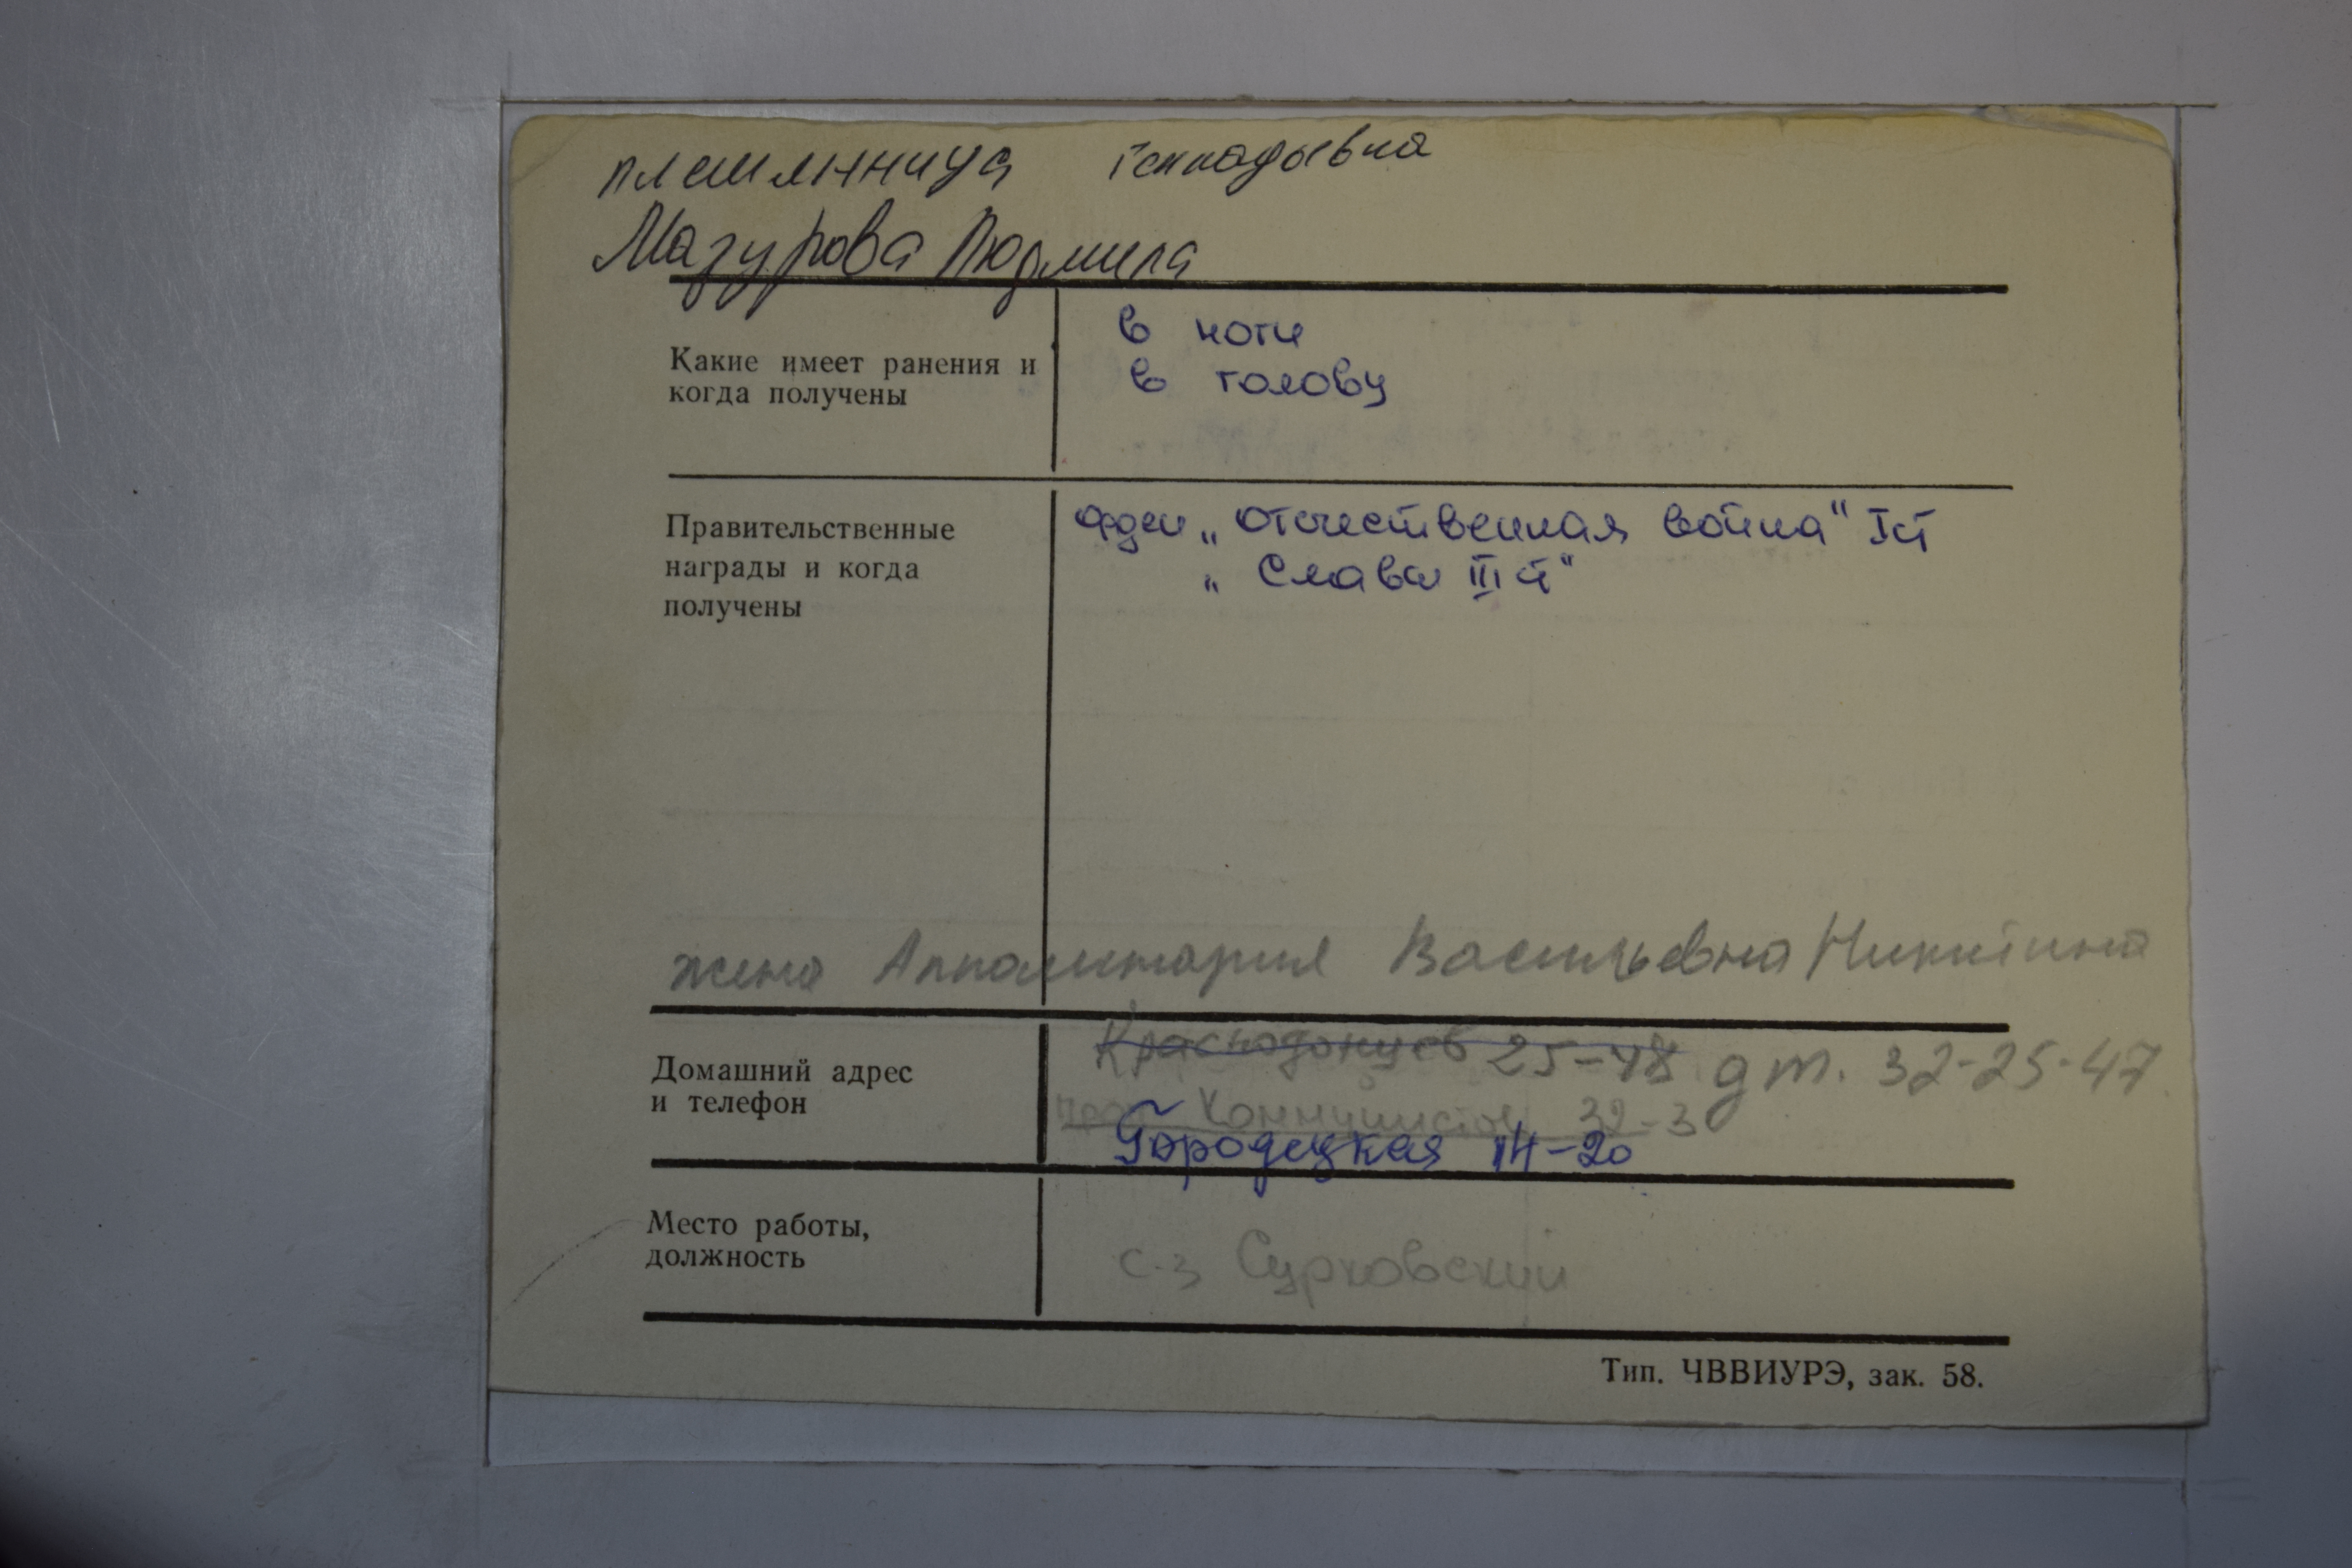 племянница Геннадьевна
Мазурова Людмила
Какие имеет ранения и
когда получены
в ноги
в голову
Правительственные
награды и когда
получены
орден „Отечественная война" I ст
„Славы III ст"
жена Апполинария Васильевна Никитина
Домашний адрес
и телефон
Краснодонцев 25-48 д т. 32-25-47
Коммунистов 32-3
Городецкая 14-20
Место работы,
должность
с-з Сурковский
Тип. ЧВВИУРЭ, зак. 58.